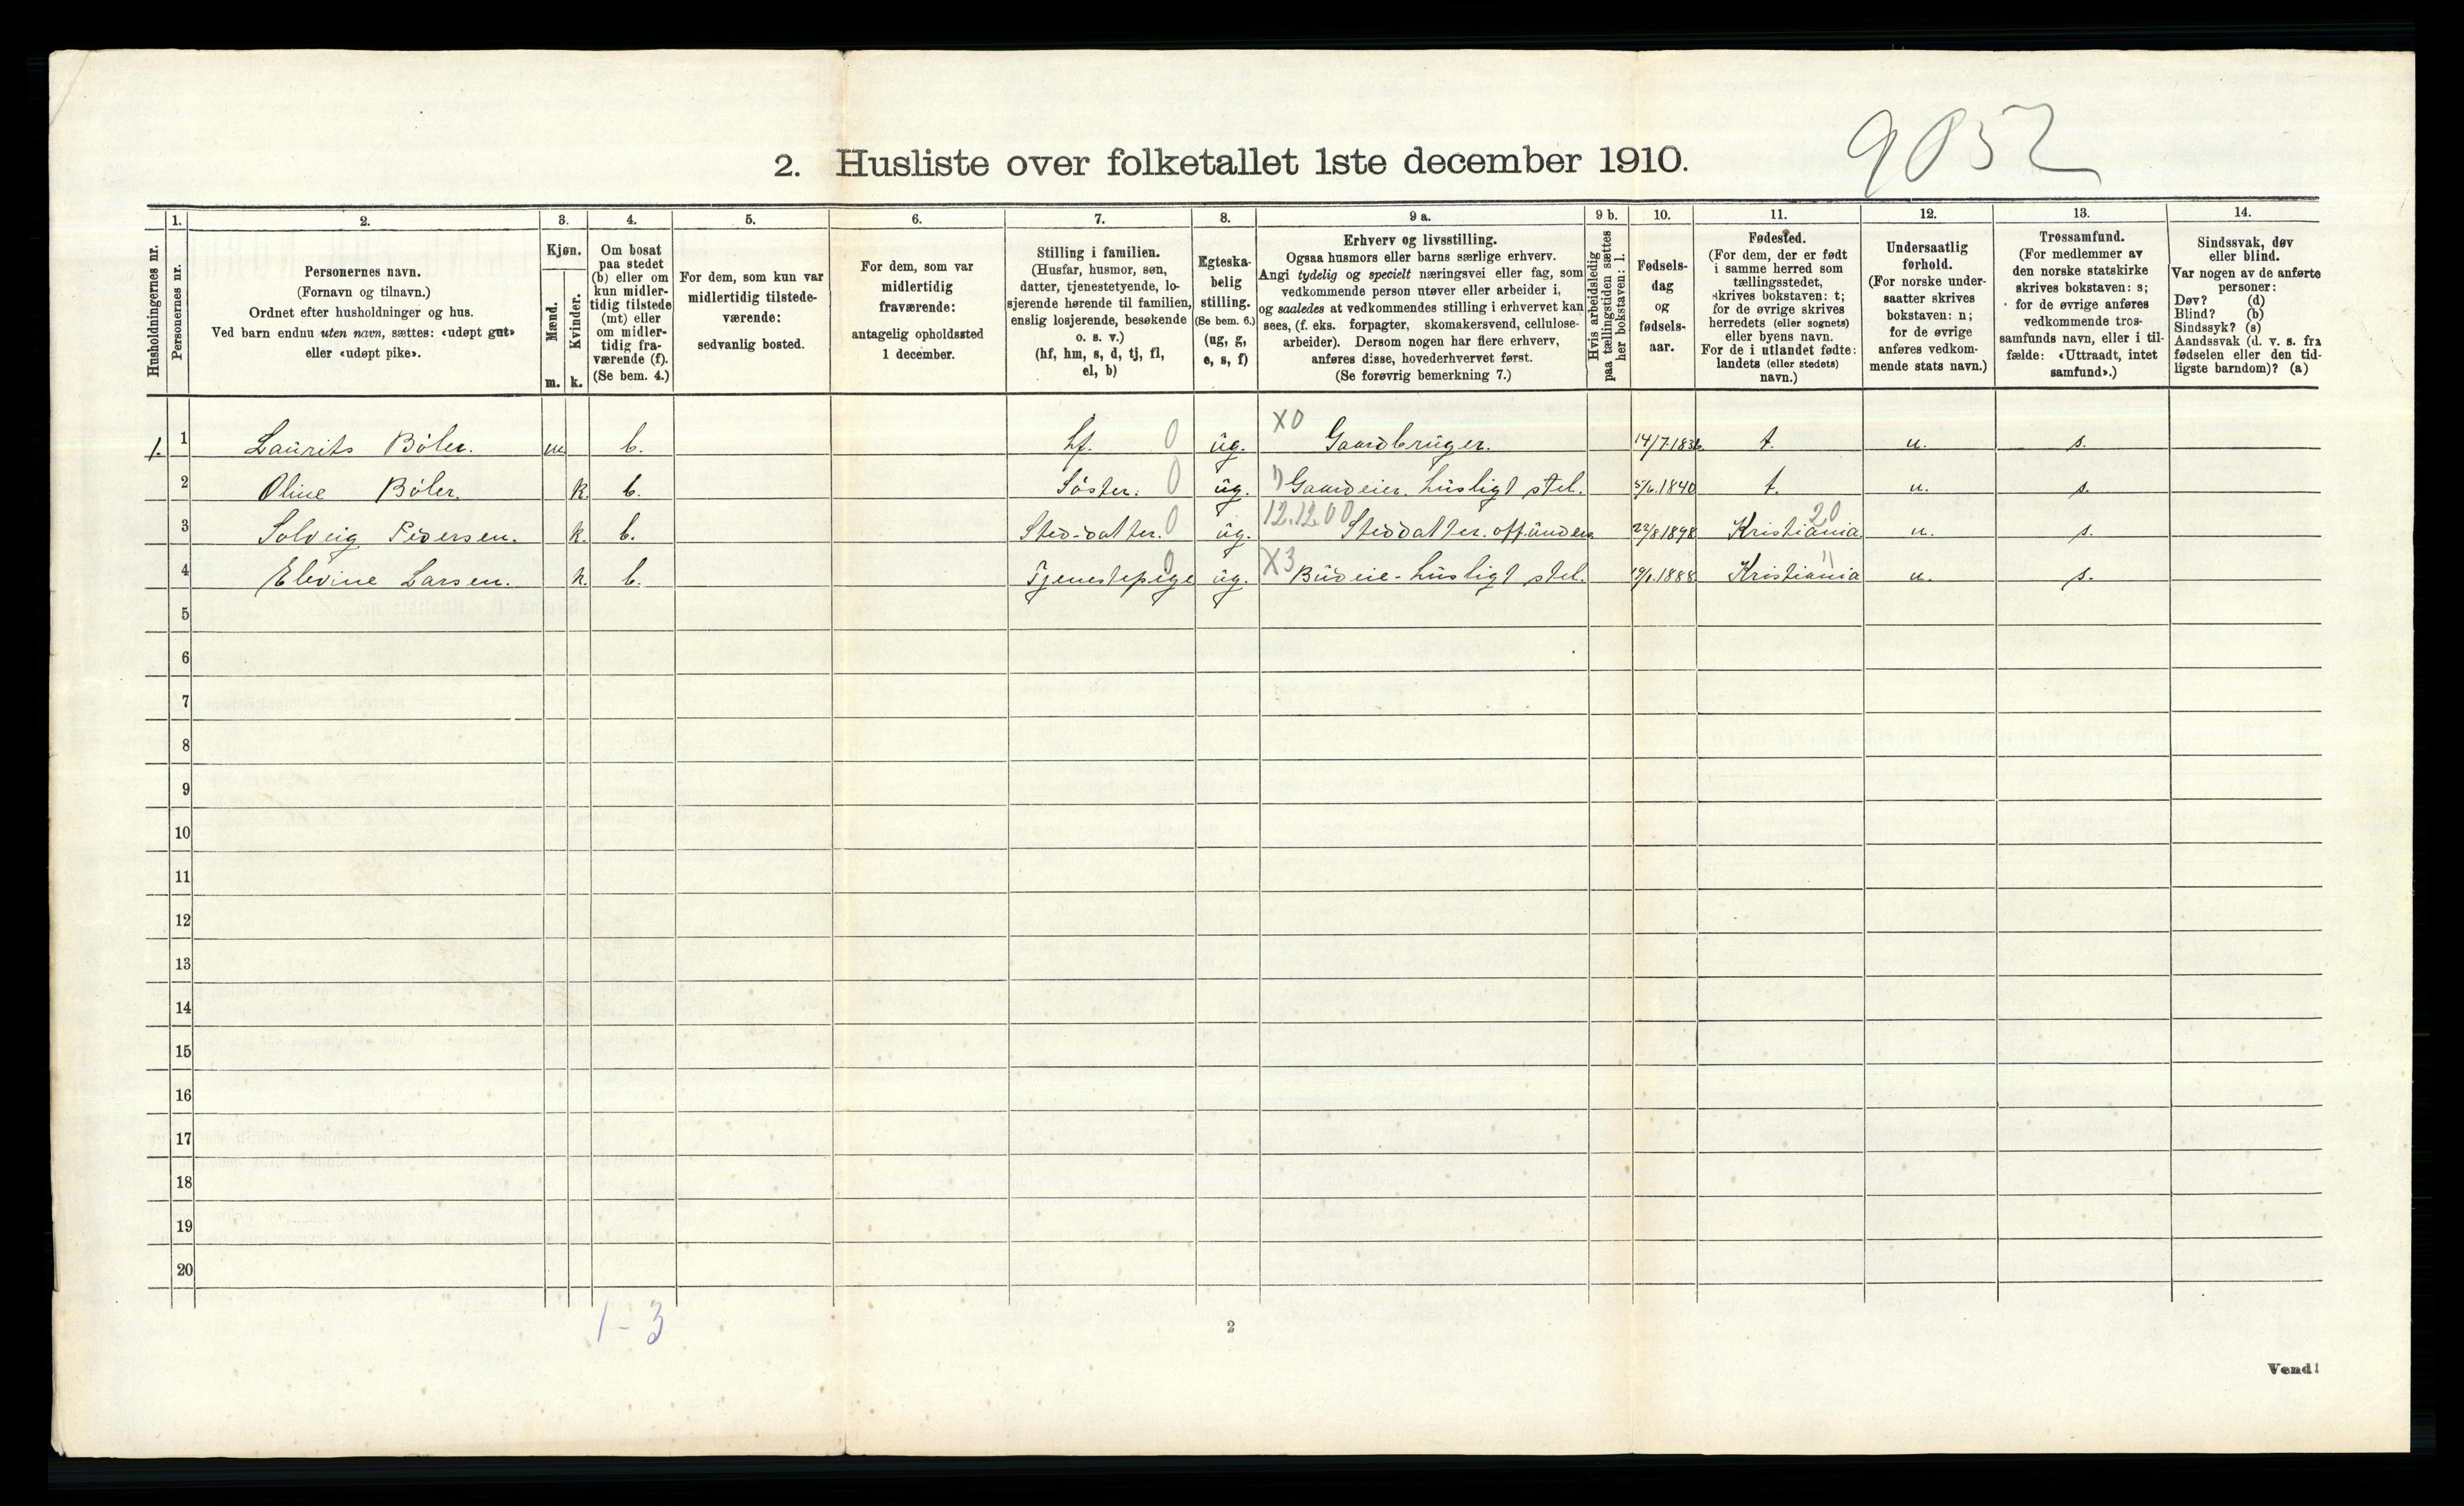 9052
2. Husliste over folketallet 1ste december 1910.
1. 2. 3. 4. 5. 6. 7. 8. 9 a. 9 b. 10. 11. 12. 13. 14.
Husholdningernes nr.
Personernes nr.
Personernes navn.
(Fornavn og tilnavn.)
Ordnet efter husholdninger og hus.
Ved barn endnu uten navn, sættes: «udøpt gut»
eller «udøpt pike».
Kjøn.
Mænd.
Kvinder.
m. k.
Om bosat
paa stedet
(b) eller om
kun midler-
tidig tilstede
(mt) eller
om midler-
tidig fra-
værende (f).
(Se bem. 4.)
For dem, som kun var
midlertidig tilstede-
værende:
sedvanlig bosted.
For dem, som var
midlertidig
fraværende:
antagelig opholdssted
1 december.
Stilling i familien.
(Husfar, husmor, søn,
datter, tjenestetyende, lo-
sjerende hørende til familien,
enslig losjerende, besøkende
o. s. v.)
(hf, hm, s, d, tj, fl,
el, b)
Egteska-
belig
stilling.
(Se bem. 6.)
(ug, g,
e, s, f)
Erhverv og livsstilling.
Ogsaa husmors eller barns særlige erhverv.
Angi tydelig og specielt næringsvei eller fag, som
vedkommende person utøver eller arbeider i,
og saaledes at vedkommendes stilling i erhvervet kan
sees, (f. eks. forpagter, skomakersvend, cellulose-
arbeider). Dersom nogen har flere erhverv,
anføres disse, hovederhvervet først.
(Se forøvrig bemerkning 7.)
Hvis arbeidsledig
paa tællingstiden sættes
her bokstaven: l.
Fødsels-
dag
og
fødsels-
aar.
Fødested.
(For dem, der er født
i samme herred som
tællingsstedet,
skrives bokstaven: t;
for de øvrige skrives
herredets (eller sognets)
eller byens navn.
For de i utlandet fødte:
landets (eller stedets)
navn.)
Undersaatlig
forhold.
(For norske under-
saatter skrives
bokstaven: n;
for de øvrige
anføres vedkom-
mende stats navn.)
Trossamfund.
(For medlemmer av
den norske statskirke
skrives bokstaven: s;
for de øvrige anføres
vedkommende tros-
samfunds navn, eller i til-
fælde: «Uttraadt, intet
samfund».)
Sindssvak, døv
eller blind.
Var nogen av de anførte
personer:
Døv? (d)
Blind? (b)
Sindssyk? (s)
Aandssvak (d. v. s. fra
fødselen eller den tid-
ligste barndom)? (a)
1. 1 Laurits Bøler. m b. hf. 0 ug. X0 Gaardbruger. 14/7.1836 t. n. s.
2 Oline Bøler. k. b. Søster. 0 ug. ") Gaardeier. husligt stel. 5/6.1840 t. n. s.
3 Solveig Pedersen. k. b. Sted-datter. 0 ug. 12.12.00 Steddatter. off. underv. 22/8 1898 Kristiania 20 n. s.
4 Elevine Larsen. k. b. Tjenestepige 0 ug. X3 Budeie - husligt stel. 19/1.1888 Kristiania " n. s.
5
6
7
8
9
10
11
12
13
14
15
16
17
18
19
20
1-3
2
Vend!